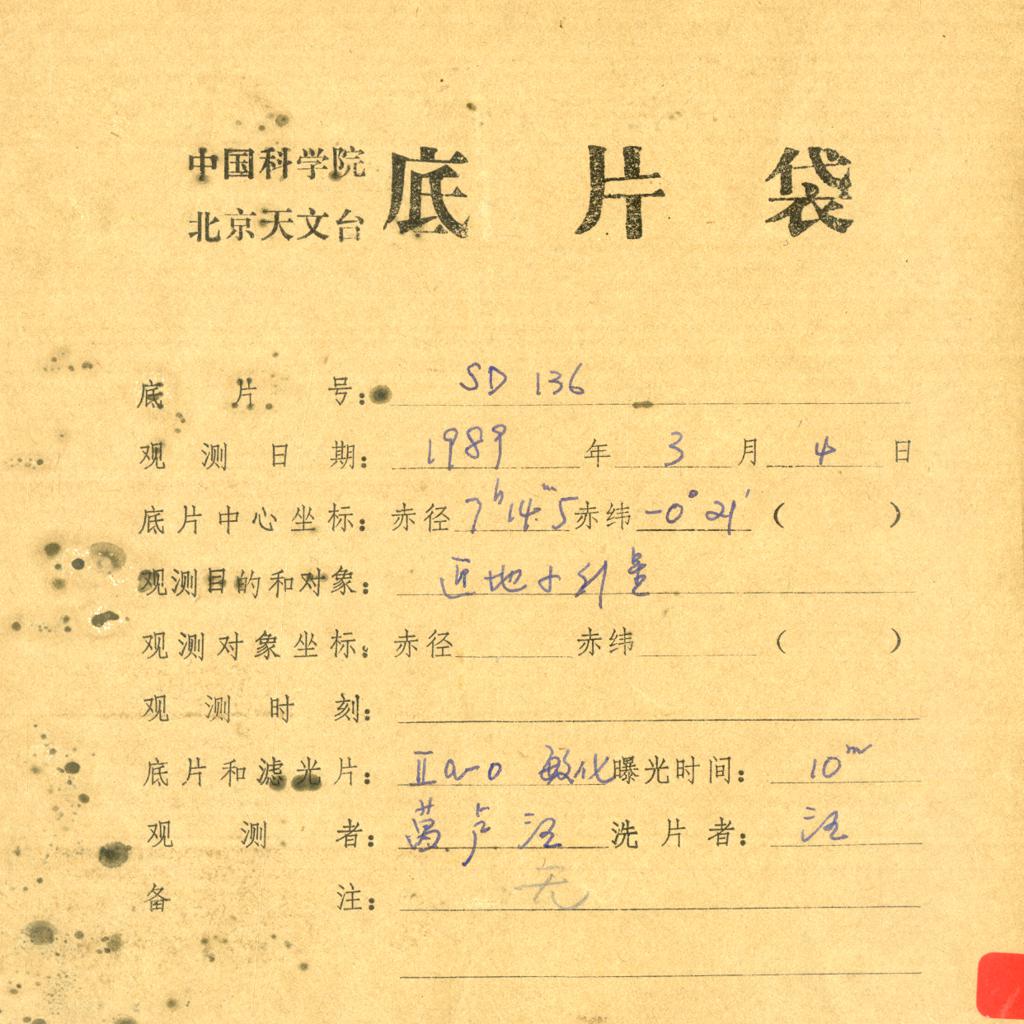 中国科学院
北京天文台
底片袋
底片号: SD 136
观测日期: 1989年3月4日
底片中心坐标: 赤径 7ʰ14ᵐ.5 赤纬 -0°21′ ( )
观测目的和对象: 近地小行星
观测对象坐标: 赤径 赤纬 ( )
观测时刻:
底片和滤光片: IIa-0 敏化 曝光时间: 10ᵐ
观测者: 卢 汪 洗片者: 汪
备注: 无